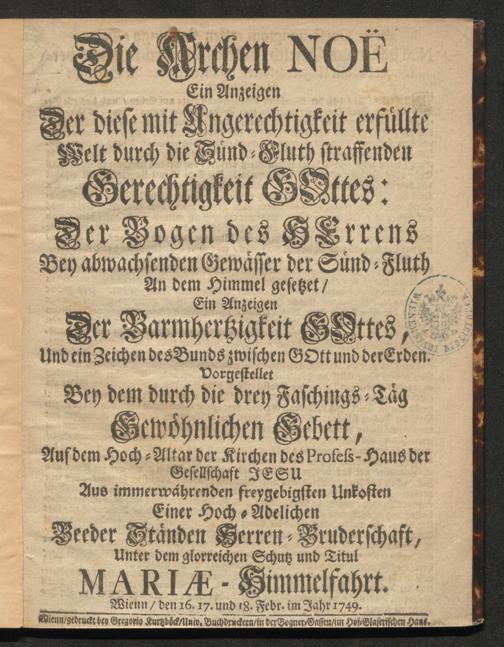 Die Archen NOË
Ein Anzeigen
Der diese mit Ungerechtigkeit erfüllte
Welt durch die Sünd-Fluth straffenden
Gerechtigkeit GOttes:
Der Bogen des HErrens
Bey abwachsenden Gewässer der Sünd-Fluth
An dem Himmel gesetzet/
Ein Anzeigen
Der Barmhertzigkeit GOttes,
Und ein Zeichen des Bunds zwischen GOtt und der Erden.
Vorgestellet
Bey dem durch die drey Faschings-Täg
Gewöhnlichen Gebett,
Auf dem Hoch-Altar der Kirchen des Profess-Haus der
Gesellschaft JESU
Aus immerwährenden freygebigsten Unkosten
Einer Hoch-Adelichen
Beeder Ständen Herren-Bruderschaft,
Unter dem glorreichen Schutz und Titul
MARIÆ-Himmelfahrt.
Wienn/ den 16. 17. und 18. Febr. im Jahr 1749.
Wienn/gedruckt bey Gregorio Kurtzböck/Univ. Buchdruckern/in der Bogner-Gassen/im Hof-Glaserischen Haus.